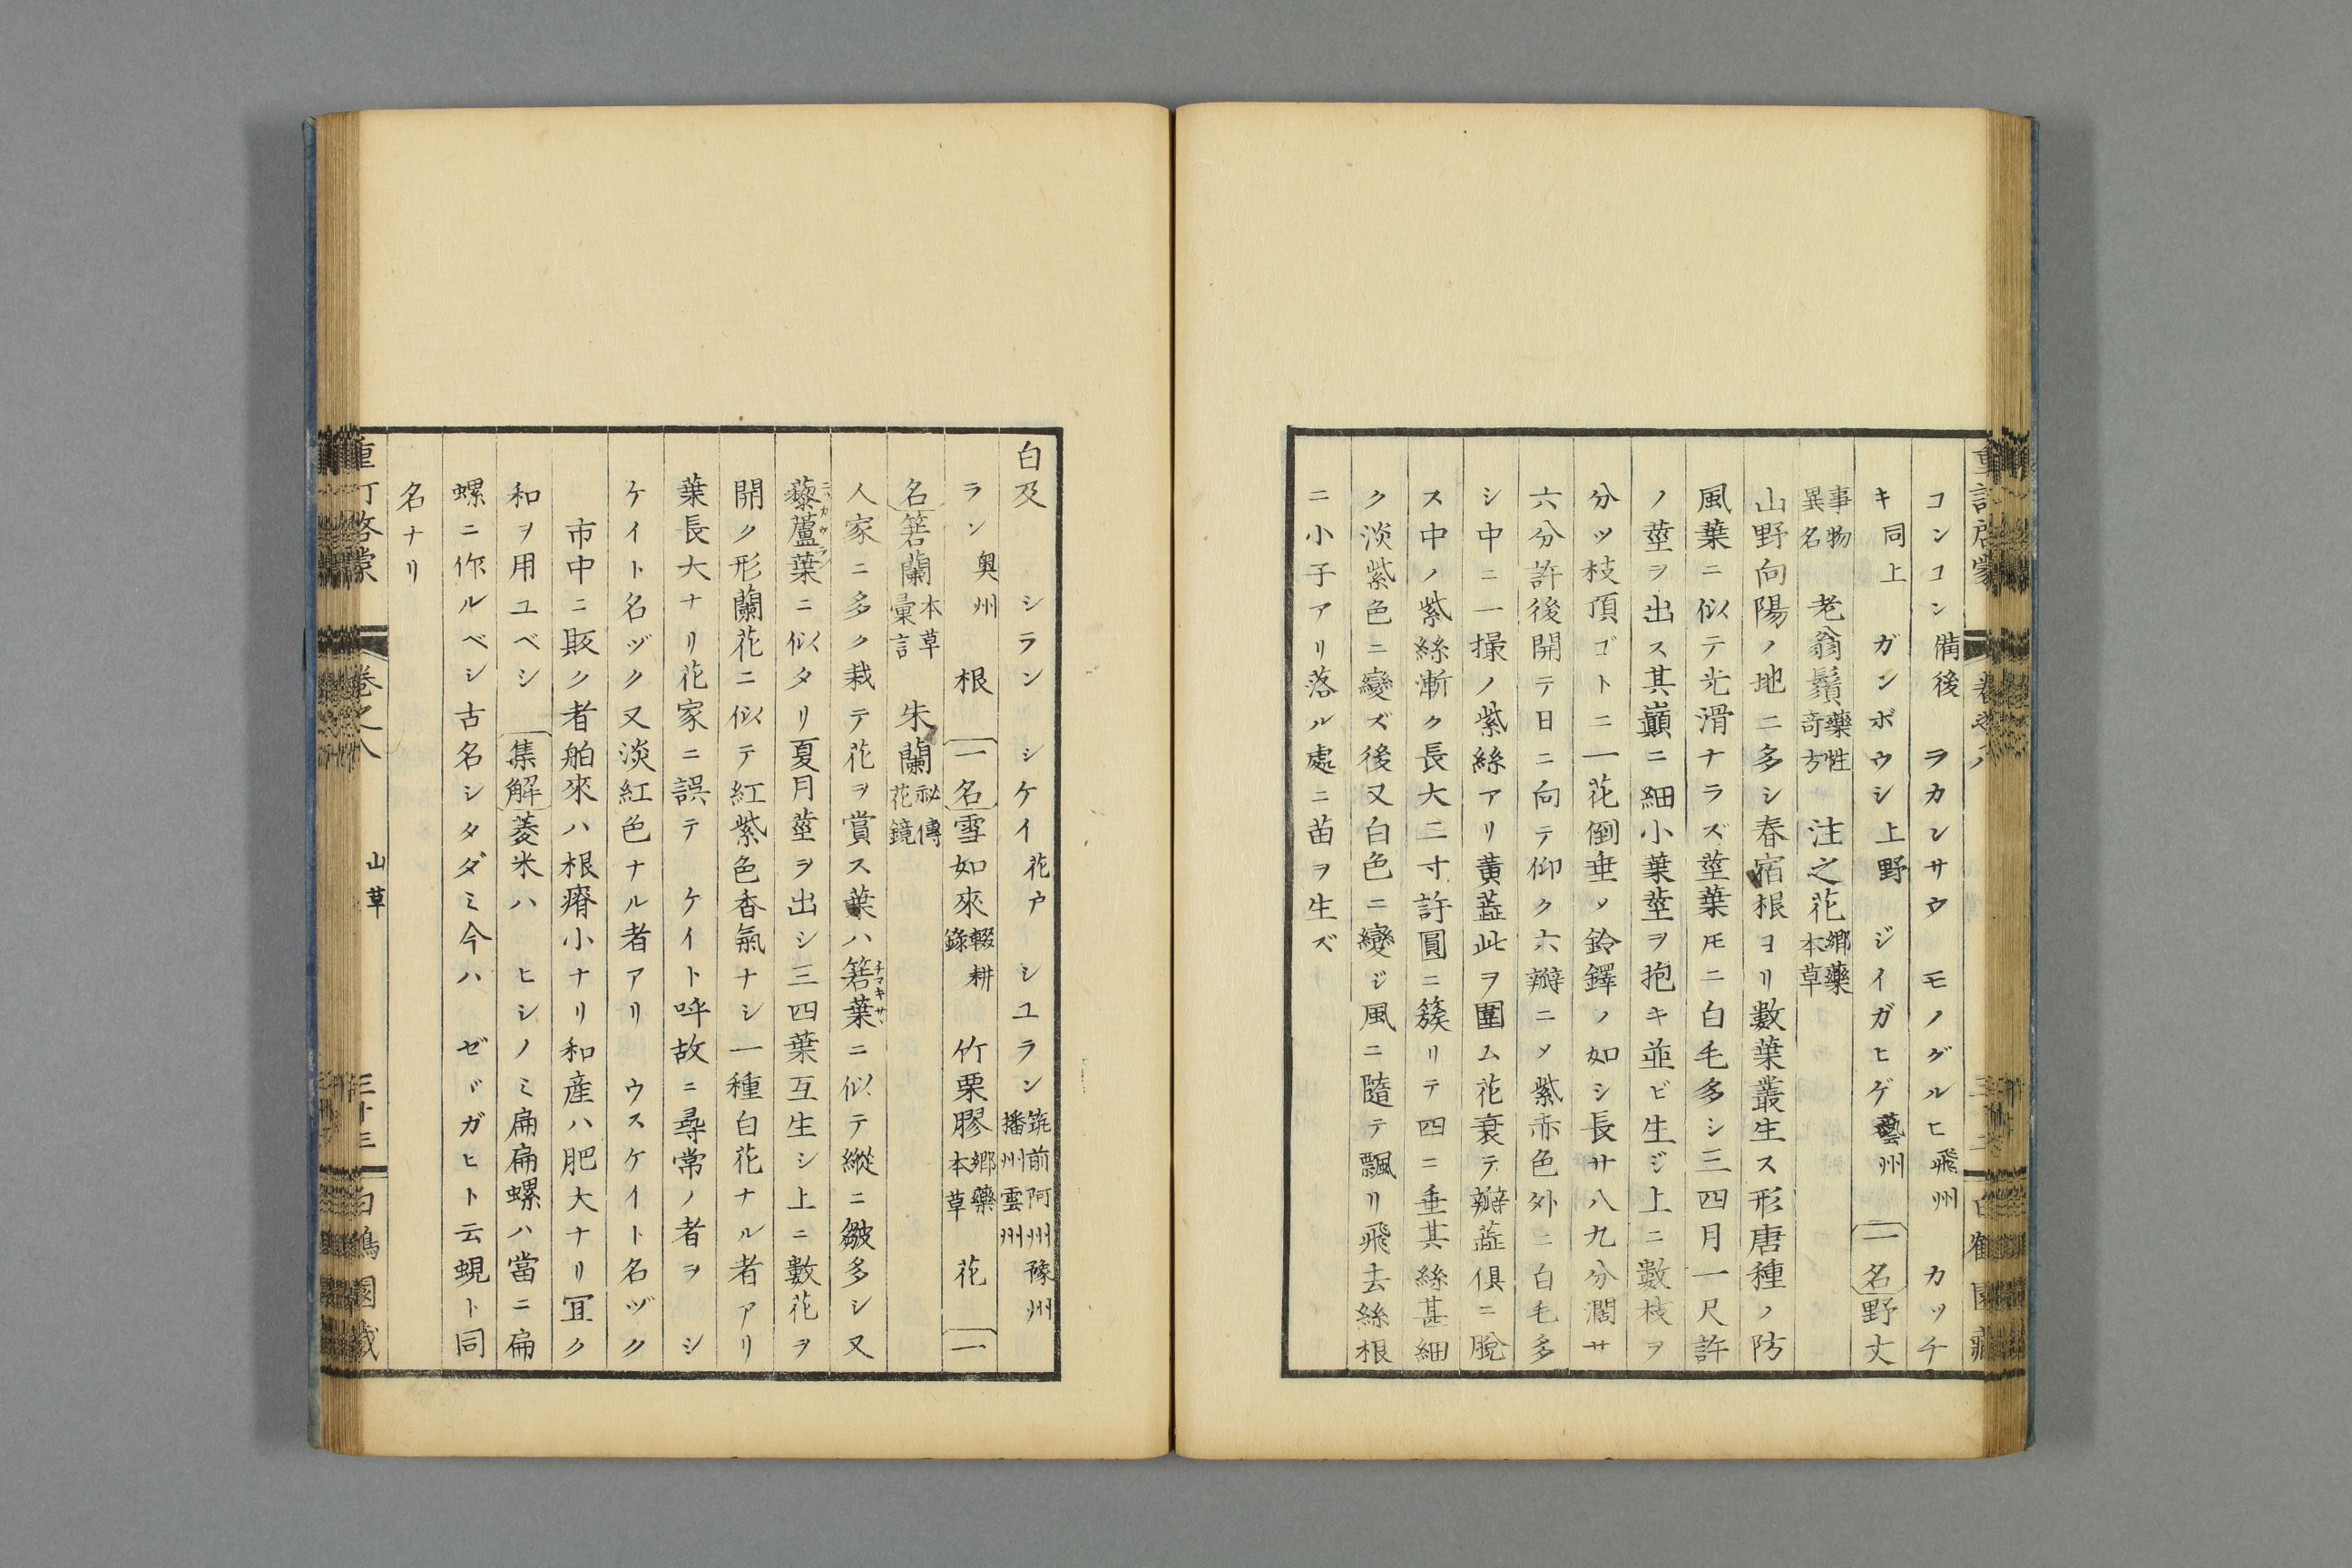 コンコン備後 ヲカンサウ モノグルヒ飛州 カッチ
キ同上 ガンボウシ上野 ジイガヒゲ藝州 一名野丈
事物異名 老翁鬚藥性奇方 注之花鄉藥本草
山野向陽ノ地ニ多シ春宿根ヨリ數葉叢生ス形唐種ノ防
風葉ニ似テ光滑ナラズ莖葉𪜈ニ白毛多シ三四月一尺許
ノ莖ヲ出ス其巓ニ細小葉莖ヲ抱キ並ビ生ジ上ニ數枝ヲ
分ツ枝頂ゴトニ一花倒垂ソ鈴鐸ノ如シ長サ八九分濶サ
六分許後開テ日ニ向テ仰ク六瓣ニメ紫赤色外ニ白毛多
シ中ニ一撮ノ紫絲アリ黃蘂此ヲ圍ム花衰テ瓣蘂俱ニ脫
ス中ノ紫絲漸ク長大二寸許圓ニ簇リテ四ニ垂其絲甚細
ク淡紫色ニ變ズ後又白色ニ變ジ風ニ隨テ飄リ飛去絲根
ニ小子アリ落ル處ニ苗ヲ生ズ
白及 シラン シケイ花戶 シユラン筑前阿州豫州播州雲州
ラン奧州 根 一名雪如來輟耕錄 竹栗膠鄉藥本草 花 一
名箬蘭本草彙言 朱蘭祕傳花鏡
人家ニ多ク栽テ花ヲ賞ス葉ハ箬葉チマキザヽニ似テ縱ニ皺多シ又
藜蘆葉ニ似タリ夏月莖ヲ出シ三四葉互生シ上ニ數花ヲ
開ク形蘭花ニ似テ紅紫色香氣ナシ一種白花ナル者アリ
葉長大ナリ花家ニ誤テ ケイト呼故ニ尋常ノ者ヲ シ
ケイト名ヅク又淡紅色ナル者アリ ウスケイト名ヅク
市中ニ販ク者舶來ハ根瘠小ナリ和產ハ肥大ナリ宜ク
和ヲ用ユベシ 集解菱米ハ ヒシノミ扁扁螺ハ當ニ扁
螺ニ作ルベシ古名シタダミ今ハ ゼヾガヒト云蜆ト同
名ナリ
重訂啓蒙 卷之八 山草 三十三